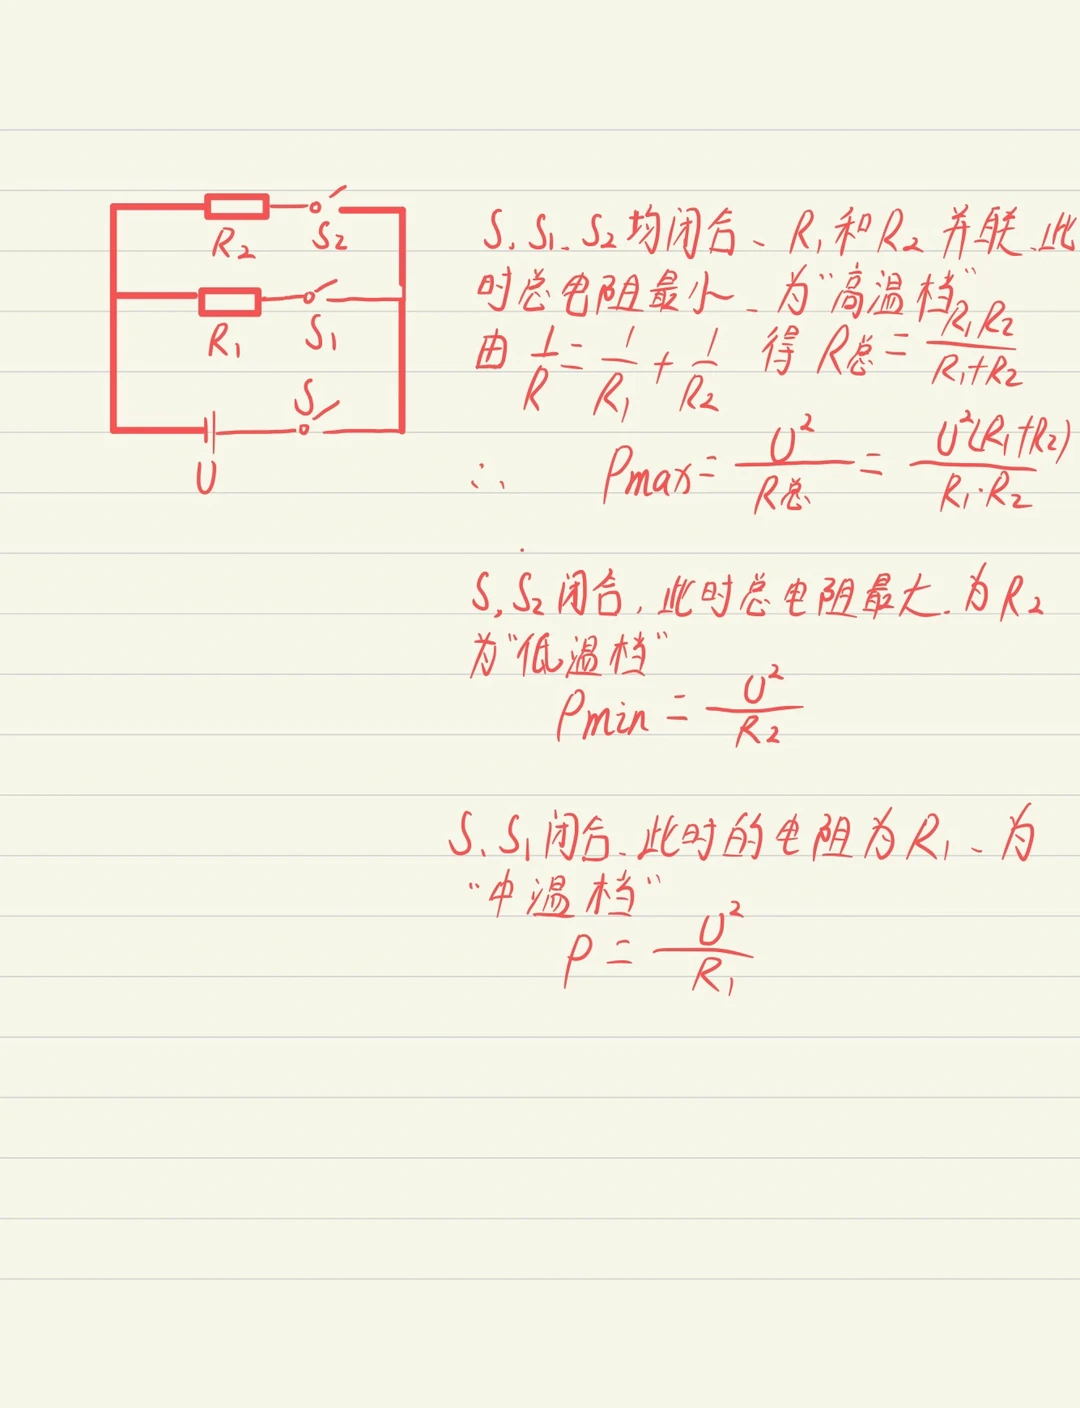 R₂ S₂
R₁ S₁
S
U
S、S₁、S₂均闭合、R₁和R₂并联、此
时总电阻最小、为“高温档”
由 1/R = 1/R₁ + 1/R₂ 得 R总 = R₁R₂/(R₁+R₂)
∴ Pmax = U²/R总 = U²(R₁+R₂)/(R₁·R₂)
S,S₂闭合,此时总电阻最大.为R₂
为“低温档”
Pmin = U²/R₂
S、S₁闭合、此时的电阻为R₁、为
“中温档”
P = U²/R₁